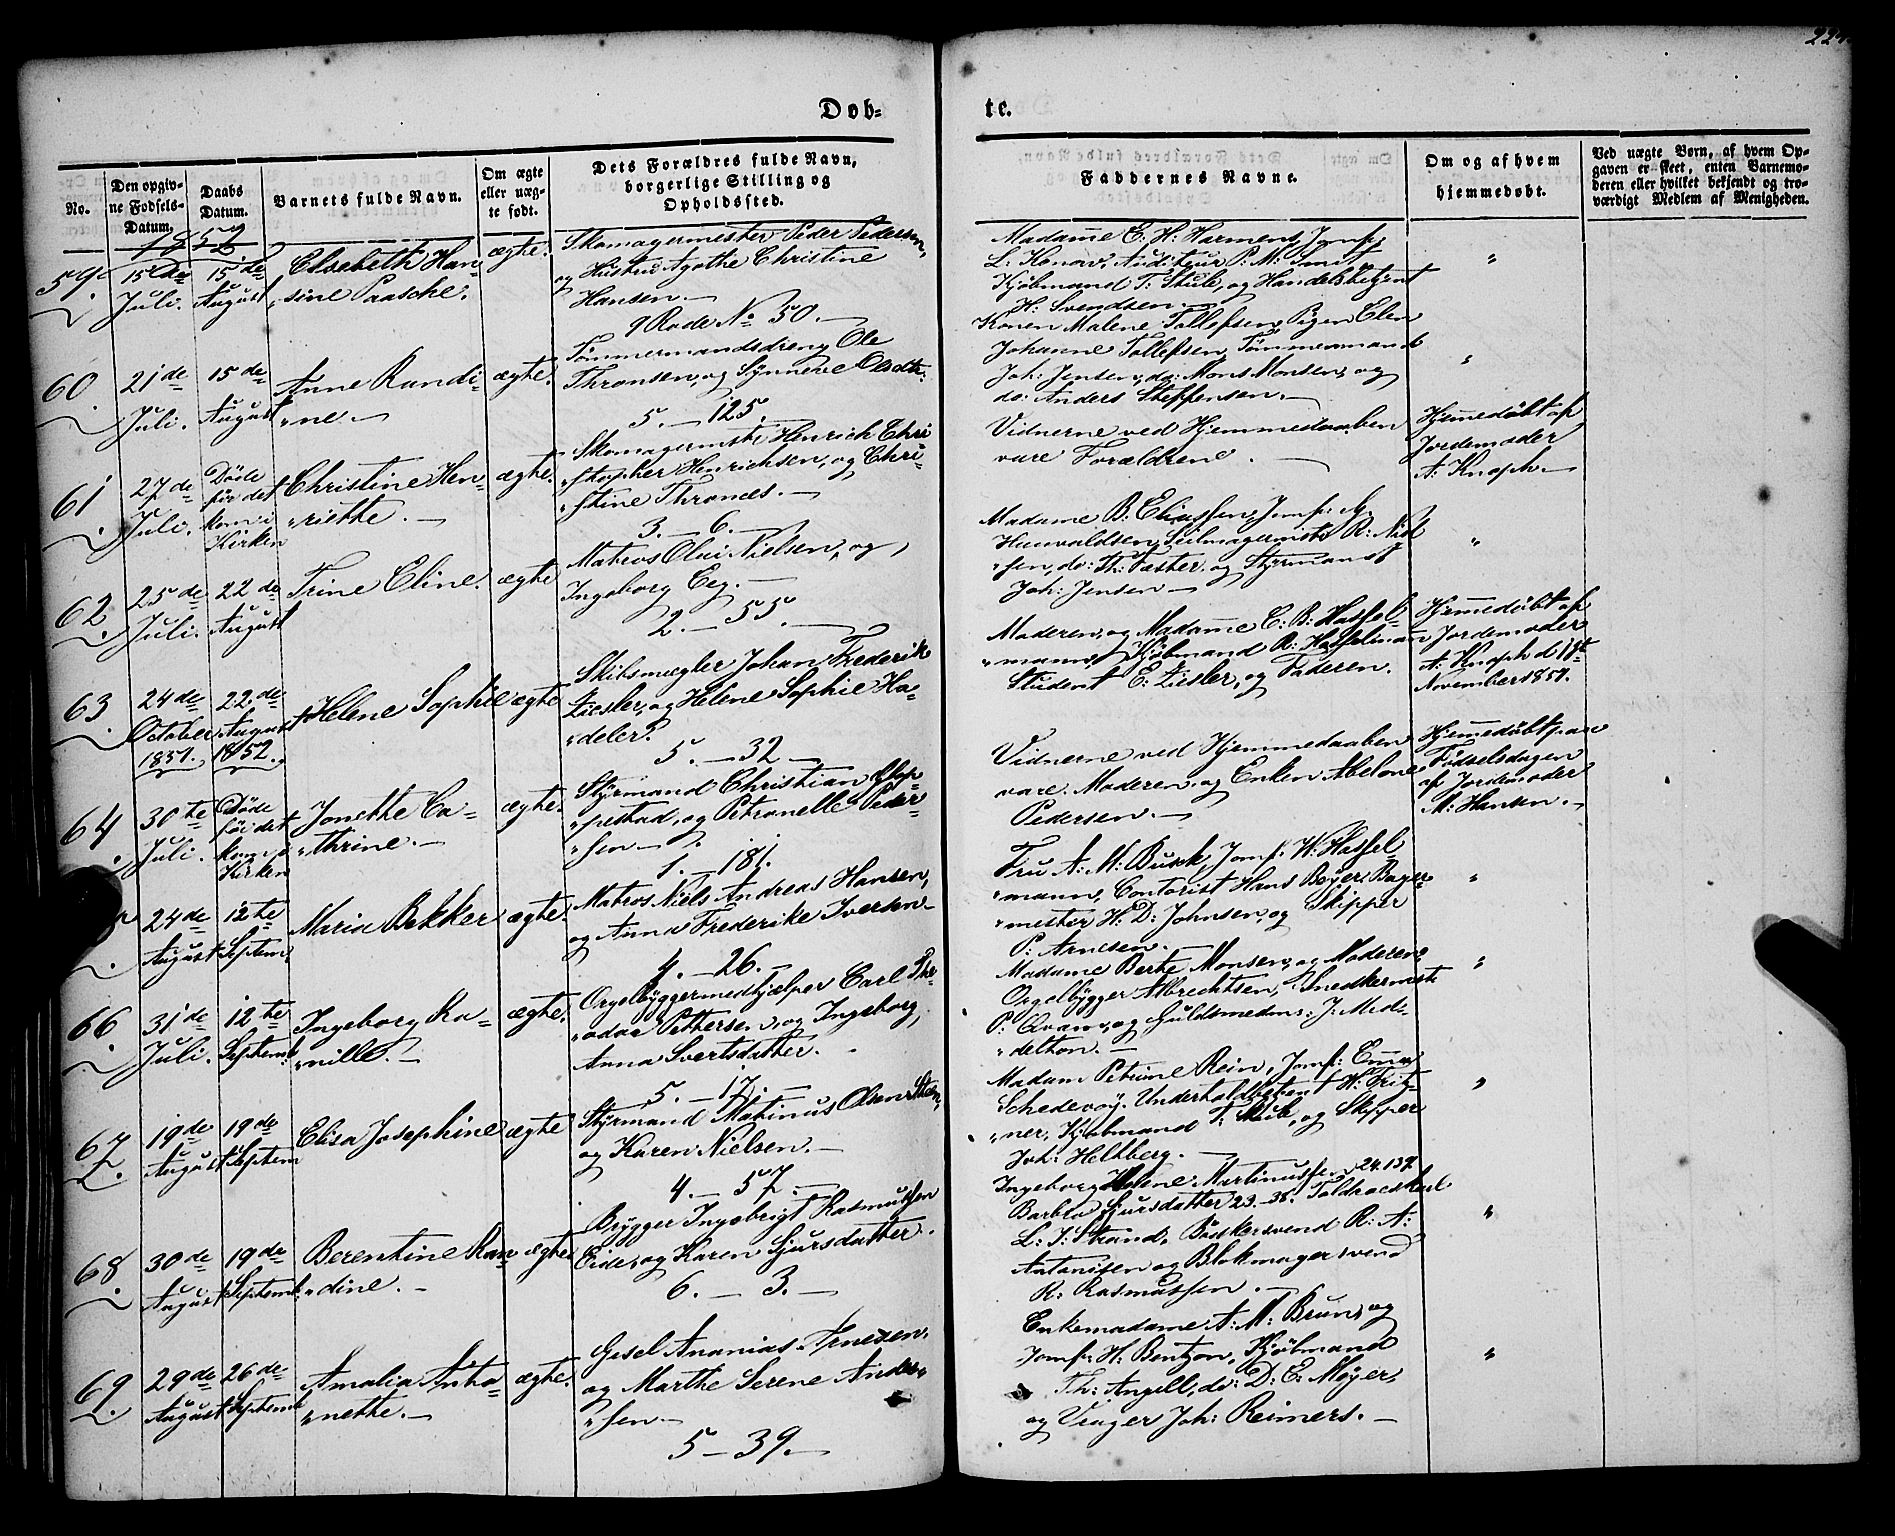 224.
Døb-
te.
No.
Den opgiv-
ne Fødsels-
Datum.
Daabs
Datum.
Barnets fulde Navn.
Om ægte
eller uæg-
te født.
Dets Forældres fulde Navn,
borgerlige Stilling og
Opholdssted.
Faddernes Navne.
Om og af hvem
hjemmedøbt.
Ved uægte Børn, af hvem Op-
gaven er skeet, enten Barnemo-
deren eller hvilket bekjendt og tro-
værdigt Medlem af Menigheden.
1852
59.
15de
Juli.
15de
August
Elsebeth Han-
sine Paasche.
ægte.
Skomagermester Peder Pedersen,
og Hustru Agathe Christine
Hansen.
9 Rode No 50.
Madame C: H: Harmens, Jomf:
L: Konow, Auditeur P: M:
Kjøbmand T: Stub, og Handelsbetjent
H: Svendsen.
"
60.
21de
Juli.
15de
August
Anne Randi-
ne.
ægte.
Tømmermandsdreng Ole
Thronsen, og Synneve Olsdtr:
5. 125.
Konen Malene Tollefsen, Pigen Elen
Johanne Tollefsen, Tømmermand
Joh: Jensen, do: Mons Monsen, og
do: Anders Steffensen.
"
61.
27de
Juli.
Døde
før det
kom i
Kirken
Christine Hen-
riette.
ægte.
Skomagermstr Henrich Chri
stopher Henrichsen, og Chri-
stine Thrones.
3. 6.
Vidnerne ved Hjemmedaaben
vare Forældrene.
Hjemmedøbt af
Jordemoder
A: Knoph.
62.
25de
Juli.
22de
August
Trine Eline.
ægte
Matros Olai Nielsen, og
Ingeborg Eeg.
2. 55.
Madame B: Eliassen, Jomf: M:
Hunvaldsen, Seilmagermstr R: Niel
sen, do: Th: Fæster og Styrmand
Joh: Jensen
"
63.
24de
October
1851.
22de
August
1852.
Helene Sophie
ægte
Skibsmægler Johan Frederik
Ziesler, og Helene Sophie Ha-
deler.
5. 32
Moderen, og Madame C: B: Hassel-
mann, Kjøbmand R: Hasselmann
Student E: Ziesler, og Faderen.
Hjemmedøbt af
Jordemoder
A: Knoph d 19de
November 1851.
64.
30te
Juli.
Døde
før det
kom i
Kirken
Jonette Ca-
thrine.
ægte.
Styrmand Christian
pestad, og Petronelle Peder
sen.
1. 181.
Vidnerne ved Hjemmedaaben
vare Moderen, og Enken Abelone
Pedersen.
Hjemmedøbt paa
Fødselsdagen
af Jordemoder
M: Hansen.
24de
August
12te
Septem.
Maria Bekker
ægte.
Matros Niels Andreas Hansen,
og Anna Frederike Iversen
4. 26.
Fru A: M: Busch, Jomf: W: Hassel-
mann, Contorist Hans Beyer, Bager-
mester H: D: Johnsen, og Skipper
P: Arnesen.
"
66.
31de
Juli.
12te
Septemb:
Ingeborg Ra-
nille.
ægte.
Orgelbyggermedhjælper Carl The-
odor Pettersen, og Ingeborg
Anna Sverts datter.
5. 17.
Madame Berte Monsen, og Moderen,
Orgelbygger Albrechtsen, Snedkermstr
P: Qvam, og Guldsmedms: J: Mid-
delthon.
"
67.
19de
August
19de
Septem
Elisa Josephine
ægte
Styrmand Matinus Olsen
og Karen Nielsen.
4. 57.
Madam Petrine Rein, Jomf: Emma
Schedevøy, Underholdbetjent H: Fritz-
ner, Kjøbmand T: Stub, og Skipper
Joh: Heltberg.
"
68.
30de
August
19de
Septemb.
Berentine Ran-
dine.
ægte
Brygger Ingebrigt Rasmussen
Eide, og Karen Sjursdatter.
6. 3.
Ingeborg Helene Martinussen 24.139
Barbro Sjursdatter 23. 35. Toldroerskarl
L: J: Strand, Bødkersvend R: A:
Antonisen og Blokmagersvend
R: Rasmussen.
"
69.
29de
August
26de
Septemb
Amalia Anto-
nette.
ægte.
Gesel Ananias Arnesen,
og Marthe Serene Ander-
sen.
5 39.
Enkemadame A: M: Brun, og
Jomf: H: Bentzon, Kjøbmand
Th: Angell, do: D: E: Møyer,
og Vrager Joh: Reimers.
"